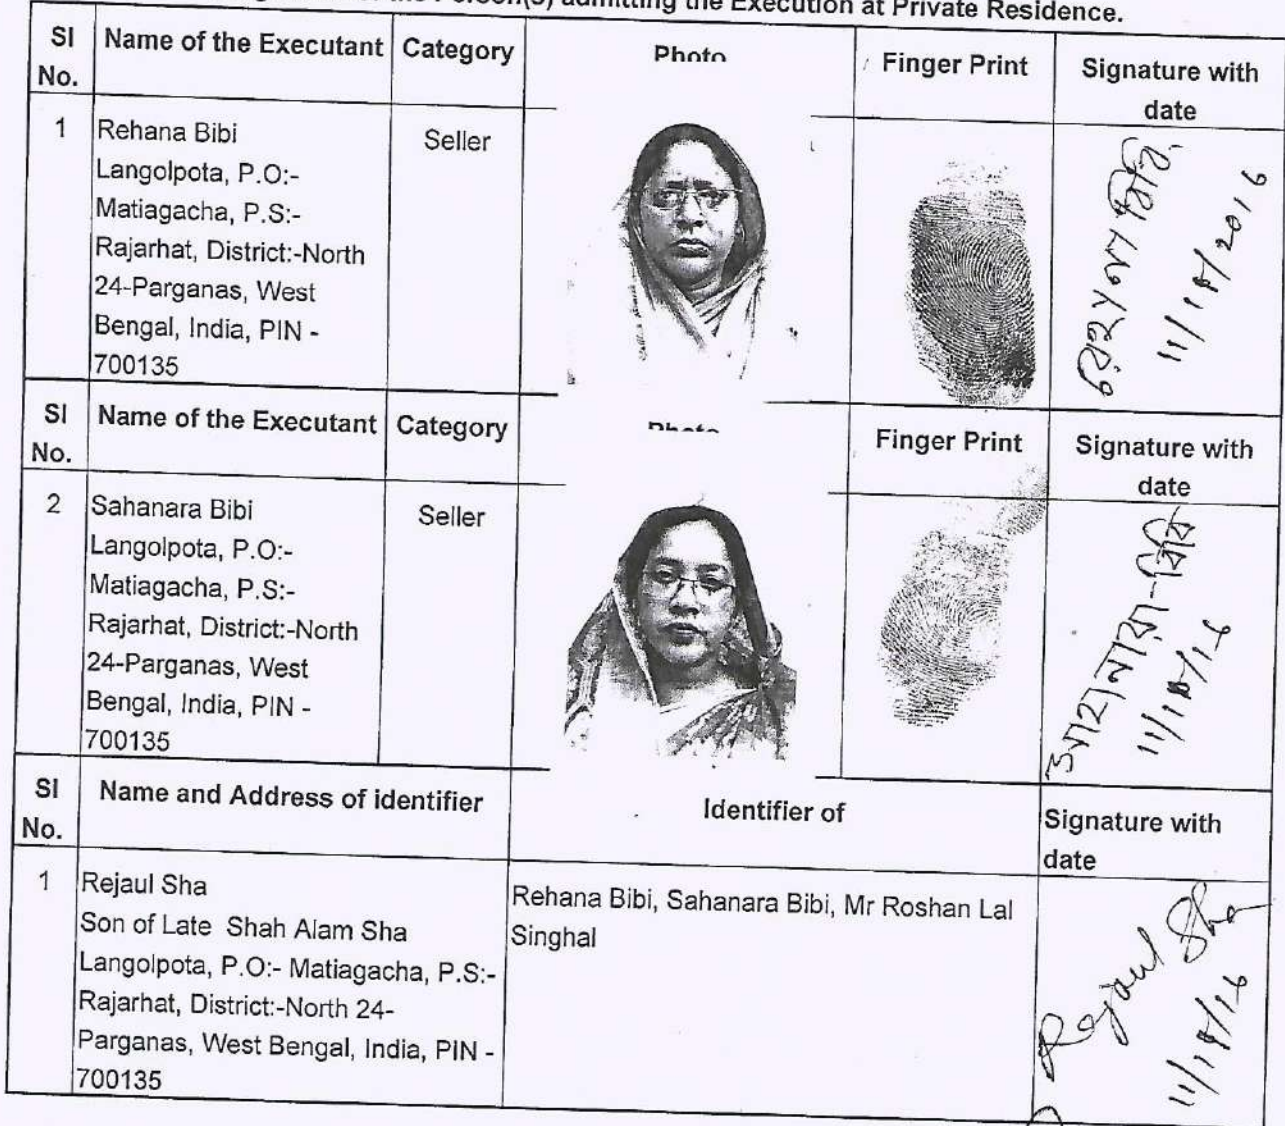 the Person(s) admitting the Execution at Private Residence.
Sl No. Name of the Executant Category Photo Finger Print Signature with date
1 Rehana Bibi Seller
Langolpota, P.O:-
Matiagacha, P.S:-
Rajarhat, District:-North
24-Parganas, West
Bengal, India, PIN -
700135
11/10/2016
Sl No. Name of the Executant Category Photo Finger Print Signature with date
2 Sahanara Bibi Seller
Langolpota, P.O:-
Matiagacha, P.S:-
Rajarhat, District:-North
24-Parganas, West
Bengal, India, PIN -
700135
বিবি
11/10/16
Sl No. Name and Address of identifier Identifier of Signature with date
1 Rejaul Sha
Son of Late Shah Alam Sha
Langolpota, P.O:- Matiagacha, P.S:-
Rajarhat, District:-North 24-
Parganas, West Bengal, India, PIN -
700135
Rehana Bibi, Sahanara Bibi, Mr Roshan Lal
Singhal
Rejaul Sha
11/10/16